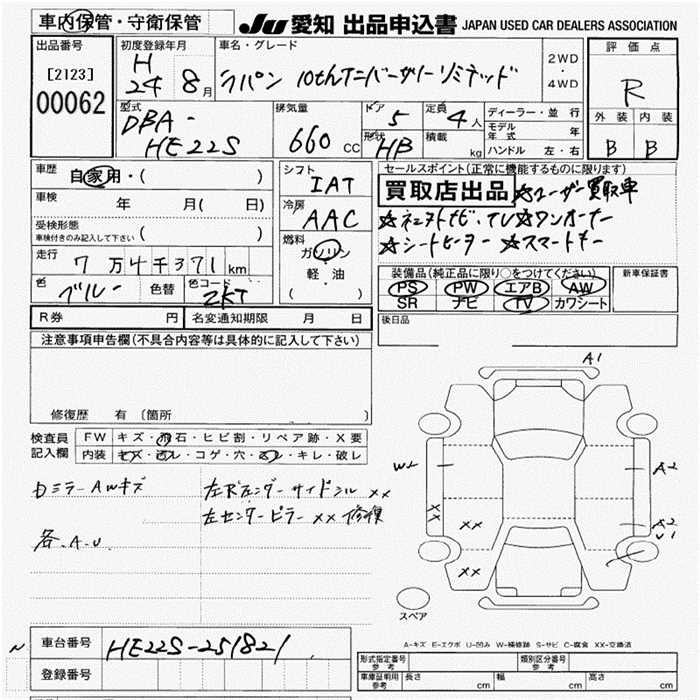 車内保管・守衛保管
JU 愛知 出品申込書 JAPAN USED CAR DEALERS ASSOCIATION
出品番号
[2123]
00062
初度登録年月
H
24 8月
車名・グレード
ラパン 10thアニバーサリーリミテッド
2WD
・
4WD
評価点
R
外装 内装
B B
型式
DBA-
HE22S
排気量
660 CC
ドア 5
形状 HB
定員 4人
積載 kg
ディーラー・並行
モデル年式 年
ハンドル 左・右
車歴
自家用・( )
車検 年 月( 日)
受検形態
車検付きのみ記入して下さい ( )
走行
7万4千371km
色 ブルー 色替 色コード ZKT
シフト
IAT
冷房
AAC
燃料
ガソリン
軽・油
( )
セールスポイント(正常に機能するものに限ります)
買取店出品 ☆ユーザー買取車
☆ TV☆ワンオーナー
☆シートヒーター ☆スマートキー
装備品(純正品に限り○をつけてください)
PS PW エアB AW
SR ナビ TV カワシート
新車保証書
後日品
R券 円 名変通知期限 月 日
注意事項申告欄(不具合内容等は具体的に記入して下さい)
修復歴 有 〔箇所 〕
検査員記入欄
FW キズ・飛石・ヒビ割・リペア跡・X要
内装 キズ・汚レ・コゲ・穴・スレ・キレ・破レ
ミラーAWキズ
サイドシル XX
左センターピラー XX 修復
各.A.U.
A1
W2
A2
XX
XX
A2
U1
XX
スペア
A-キズ E-エクボ U-凹み W-補修跡 S-サビ C-腐食 XX-交換済
車台番号 HE22S-251821
登録番号
形式指定番号
参考
類別区分番号
参考
車庫証明用
参考
長さ cm 幅 cm 高さ cm